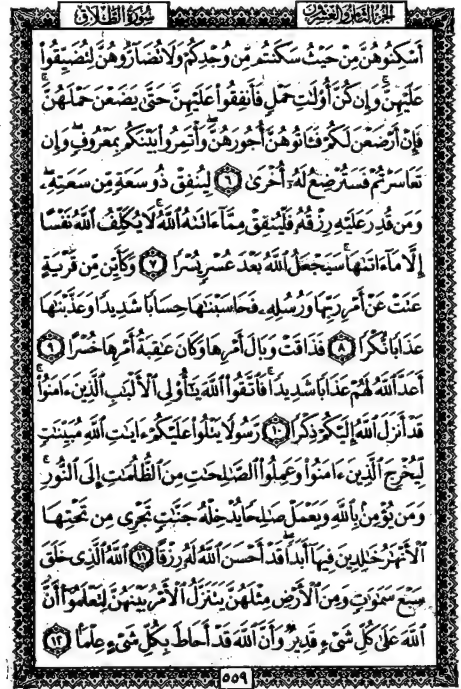 الجزء الثامن والعشرون سورة الطلاق
أَسْكِنُوهُنَّ مِنْ حَيْثُ سَكَنتُم مِّن وُجْدِكُمْ وَلَا تُضَآرُّوهُنَّ لِتُضَيِّقُوا۟
عَلَيْهِنَّ ۚ وَإِن كُنَّ أُو۟لَٰتِ حَمْلٍ فَأَنفِقُوا۟ عَلَيْهِنَّ حَتَّىٰ يَضَعْنَ حَمْلَهُنَّ ۚ
فَإِنْ أَرْضَعْنَ لَكُمْ فَـَٔاتُوهُنَّ أُجُورَهُنَّ ۖ وَأْتَمِرُوا۟ بَيْنَكُم بِمَعْرُوفٍ ۖ وَإِن
تَعَاسَرْتُمْ فَسَتُرْضِعُ لَهُۥٓ أُخْرَىٰ ٦ لِيُنفِقْ ذُو سَعَةٍ مِّن سَعَتِهِۦ ۖ
وَمَن قُدِرَ عَلَيْهِ رِزْقُهُۥ فَلْيُنفِقْ مِمَّآ ءَاتَىٰهُ ٱللَّهُ ۚ لَا يُكَلِّفُ ٱللَّهُ نَفْسًا
إِلَّا مَآ ءَاتَىٰهَا ۚ سَيَجْعَلُ ٱللَّهُ بَعْدَ عُسْرٍ يُسْرًا ٧ وَكَأَيِّن مِّن قَرْيَةٍ
عَتَتْ عَنْ أَمْرِ رَبِّهَا وَرُسُلِهِۦ فَحَاسَبْنَٰهَا حِسَابًا شَدِيدًا وَعَذَّبْنَٰهَا
عَذَابًا نُّكْرًا ٨ فَذَاقَتْ وَبَالَ أَمْرِهَا وَكَانَ عَٰقِبَةُ أَمْرِهَا خُسْرًا ٩
أَعَدَّ ٱللَّهُ لَهُمْ عَذَابًا شَدِيدًا ۖ فَٱتَّقُوا۟ ٱللَّهَ يَٰٓأُو۟لِى ٱلْأَلْبَٰبِ ٱلَّذِينَ ءَامَنُوا۟ ۚ
قَدْ أَنزَلَ ٱللَّهُ إِلَيْكُمْ ذِكْرًا ١٠ رَّسُولًا يَتْلُوا۟ عَلَيْكُمْ ءَايَٰتِ ٱللَّهِ مُبَيِّنَٰتٍ
لِّيُخْرِجَ ٱلَّذِينَ ءَامَنُوا۟ وَعَمِلُوا۟ ٱلصَّٰلِحَٰتِ مِنَ ٱلظُّلُمَٰتِ إِلَى ٱلنُّورِ ۚ
وَمَن يُؤْمِنۢ بِٱللَّهِ وَيَعْمَلْ صَٰلِحًا يُدْخِلْهُ جَنَّٰتٍ تَجْرِى مِن تَحْتِهَا
ٱلْأَنْهَٰرُ خَٰلِدِينَ فِيهَآ أَبَدًا ۖ قَدْ أَحْسَنَ ٱللَّهُ لَهُۥ رِزْقًا ١١ ٱللَّهُ ٱلَّذِى خَلَقَ
سَبْعَ سَمَٰوَٰتٍ وَمِنَ ٱلْأَرْضِ مِثْلَهُنَّ يَتَنَزَّلُ ٱلْأَمْرُ بَيْنَهُنَّ لِتَعْلَمُوٓا۟ أَنَّ
ٱللَّهَ عَلَىٰ كُلِّ شَىْءٍ قَدِيرٌ وَأَنَّ ٱللَّهَ قَدْ أَحَاطَ بِكُلِّ شَىْءٍ عِلْمًۢا ١٢
٥٥٩